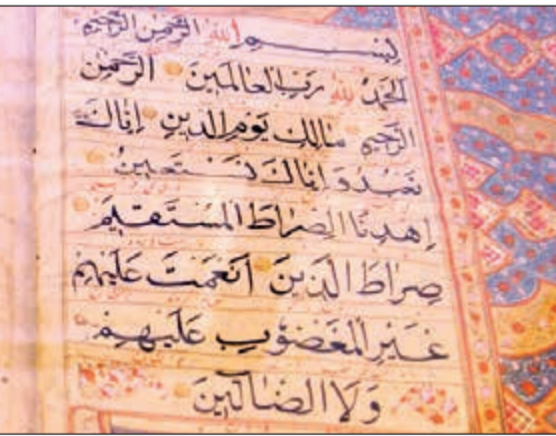 بِسْمِ اللهِ الرَّحْمٰنِ الرَّحِيْمِ
اَلْحَمْدُ لِلّٰهِ رَبِّ الْعَالَمِيْنَ الرَّحْمٰنِ
الرَّحِيْمِ مَالِكِ يَوْمِ الدِّيْنِ اِيَّاكَ
نَعْبُدُ وَاِيَّاكَ نَسْتَعِيْنُ
اِهْدِنَا الصِّرَاطَ الْمُسْتَقِيْمَ
صِرَاطَ الَّذِيْنَ اَنْعَمْتَ عَلَيْهِمْ
غَيْرِ الْمَغْضُوْبِ عَلَيْهِمْ
وَلَا الضَّالِّيْنَ